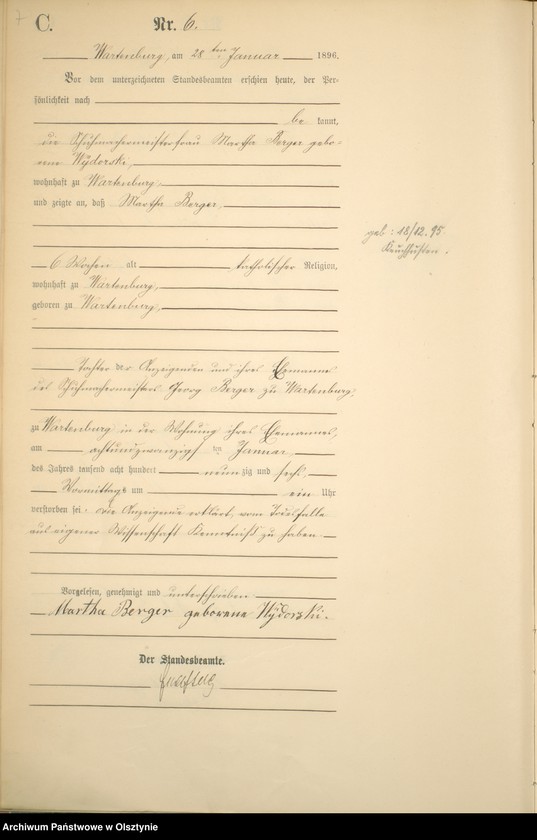 7
C.
Nr. 6.
Wartenburg, am 28 ten Januar 1896.
Vor dem unterzeichneten Standesbeamten erschien heute, der Per-
sönlichkeit nach
be kannt,
die Schuhmachermeisterfrau Martha Berger gebo-
rene Wÿdorski,
wohnhaft zu Wartenburg,
und zeigte an, daß Martha Berger,
6 Wochen alt katholischer Religion,
wohnhaft zu Wartenburg,
geboren zu Wartenburg,
geb: 18/12.95
Keuchhusten.
Tochter der Anzeigenden und ihres Ehemannes
des Schuhmachermeisters Georg Berger zu Wartenburg,
zu Wartenburg in der Wohnung ihres Ehemannes,
am achtundzwanzigsten Januar
des Jahres tausend acht hundert neunzig und sechs,
Vormittags um ein Uhr
verstorben sei. Die Anzeigende erklärt, vom Todesfalle
aus eigener Wissenschaft Kenntniß zu haben
Vorgelesen, genehmigt und unterschrieben
Martha Berger geborene Wÿdorski.
Der Standesbeamte.
Archiwum Państwowe w Olsztynie